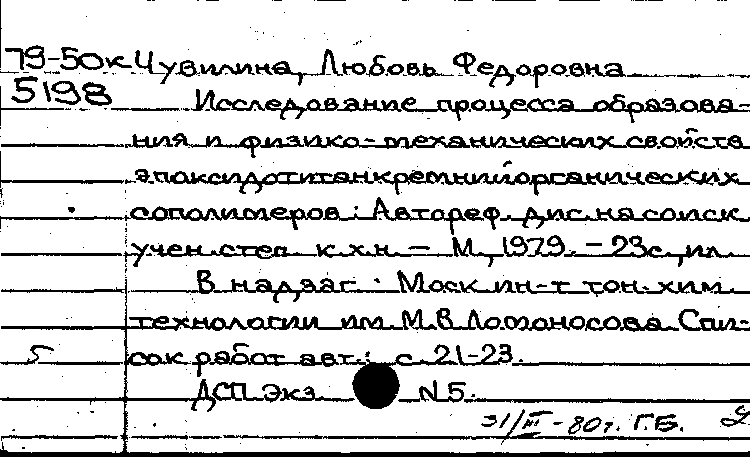 79-50к Чувилина, Любовь Федоровна
5198 Исследование процесса образова-
ния и физико-механических свойств
эпоксидотитанкремнийорганических
сополимеров: Автореф. дис. на соиск.
учен. степ. к.х.н. – М., 1979. – 23с., ил.
В надзаг.: Моск. ин-т тон. хим.
технологии им. М.В. Ломоносова. Спи-
5 сок работ авт.: с. 21-23.
ДСП. Экз. N5.
31/III-80г. Г.Б.